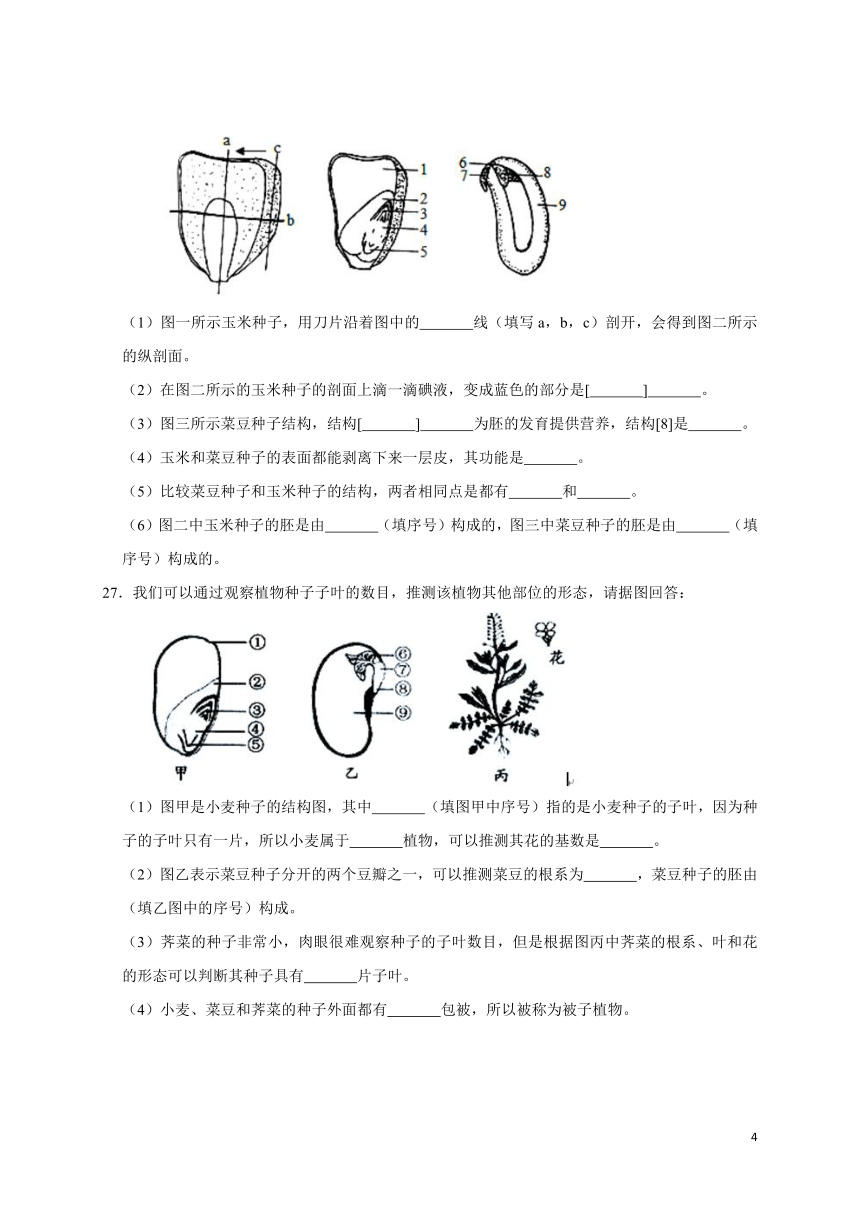 a c
b
1
2
3
4
5
6
7
8
9
（1）图一所示玉米种子，用刀片沿着图中的_______线（填写a，b，c）剖开，会得到图二所示
的纵剖面。
（2）在图二所示的玉米种子的剖面上滴一滴碘液，变成蓝色的部分是[_______]_______。
（3）图三所示菜豆种子结构，结构[_______]_______为胚的发育提供营养，结构[8]是_______。
（4）玉米和菜豆种子的表面都能剥离下来一层皮，其功能是_______。
（5）比较菜豆种子和玉米种子的结构，两者相同点是都有_______和_______。
（6）图二中玉米种子的胚是由_______（填序号）构成的，图三中菜豆种子的胚是由_______（填
序号）构成的。
27．我们可以通过观察植物种子子叶的数目，推测该植物其他部位的形态，请据图回答：
①
②
③
④
⑤
甲
⑥
⑦
⑧
⑨
乙
花
丙
（1）图甲是小麦种子的结构图，其中_______（填图甲中序号）指的是小麦种子的子叶，因为种
子的子叶只有一片，所以小麦属于_______植物，可以推测其花的基数是_______。
（2）图乙表示菜豆种子分开的两个豆瓣之一，可以推测菜豆的根系为_______，菜豆种子的胚由
（填乙图中的序号）构成。
（3）荠菜的种子非常小，肉眼很难观察种子的子叶数目，但是根据图丙中荠菜的根系、叶和花
的形态可以判断其种子具有_______片子叶。
（4）小麦、菜豆和荠菜的种子外面都有_______包被，所以被称为被子植物。
4